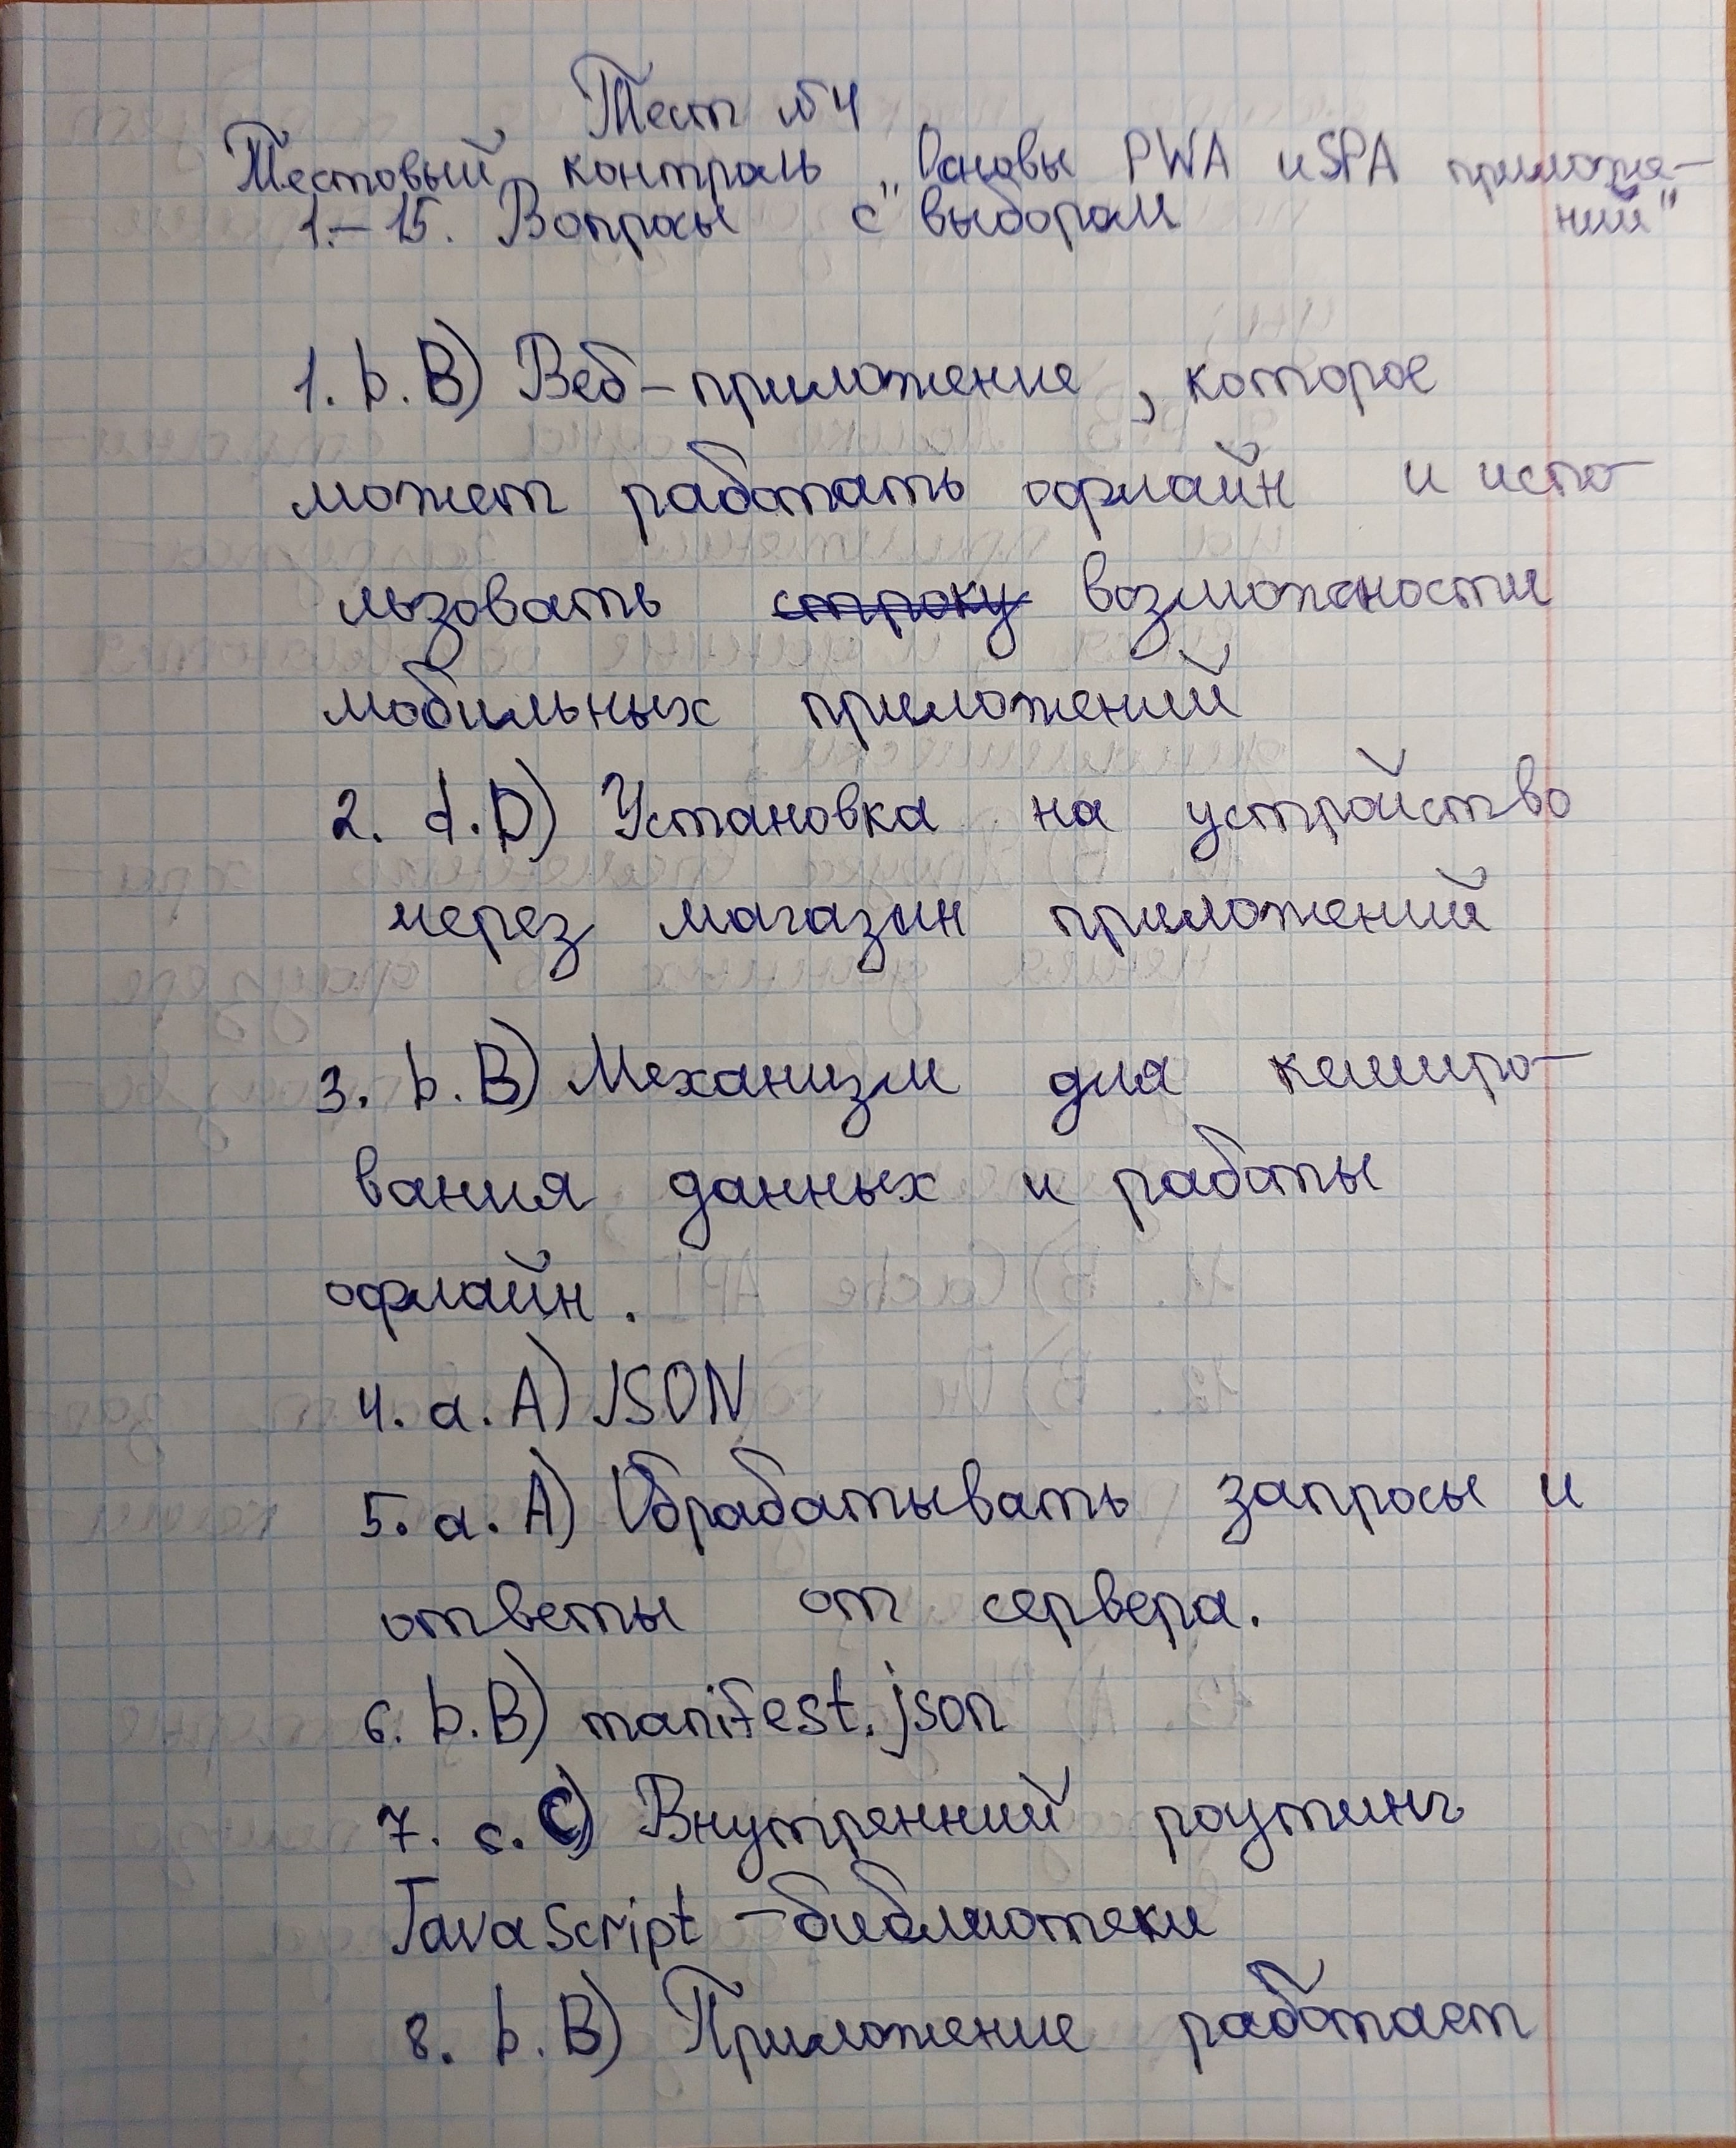 Тест №4
Тестовый контроль „Основы PWA и SPA приложе-
ний"
1.–15. Вопросы с выбором
1. b. B) Веб-приложение, которое
может работать офлайн и испо-
льзовать строку возможности
мобильных приложений
2. d. D) Установка на устройство
через магазин приложений
3. b. B) Механизм для кеширо-
вания данных и работы
офлайн.
4. a. A) JSON
5. a. A) Обрабатывать запросы и
ответы от сервера.
6. b. B) manifest.json
7. c. C) Внутренний роутинг
JavaScript-библиотеки
8. b. B) Приложение работает